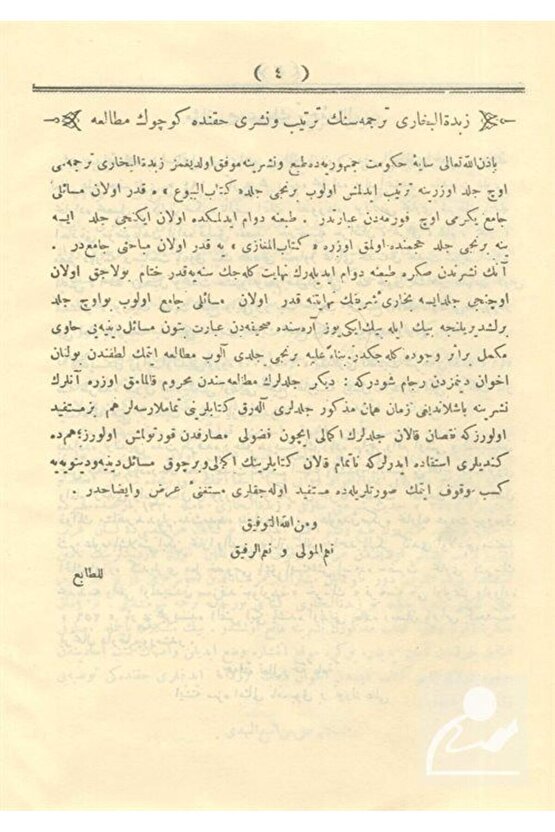 ( ٤ )
زبدة البخاری ترجمه‌سنك ترتیب و نشری حقنده كوچوك مطالعه
باذن‌الله تعالی سایهٔ حكومت جمهوریه‌ده طبع و نشرینه موفق اولدیغمز زبدة البخاری ترجمه‌سی
اوچ جلد اوزرینه ترتیب ایدلمش اولوب برنجی جلده « كتاب البیوع » ه قدر اولان مسائلی
جامع یكرمی اوچ فورمه‌دن عبارتدر . طبعنه دوام ایدلمكده اولان ایكنجی جلد ایسه
ینه برنجی جلد حجمنده اولمق اوزره « كتاب المغازی » یه قدر اولان مباحثی جامع‌در .
آنك نشرندن صكره طبعنه دوام ایدیله‌رك نهایت كله‌جك سنه‌یه قدر ختام بولاجق اولان
اوچنجی جلد ایسه بخاریٔ شریفك نهایتنه قدر اولان مسائلی جامع اولوب بو اوچ جلد
برلشدیریلنجه بیك ایله بیك ایكی یوز آره‌سنده صحیفه‌دن عبارت بتون مسائل دینیه‌یی حاوی
مكمل بر اثر وجوده كله‌جكدر. بناءً علیه برنجی جلدی آلوب مطالعه ایتمك لطفندن بولنان
اخوان دینمزدن رجام شودركه : دیكر جلدلرك مطالعه‌سندن محروم قالمامق اوزره آنلرك
نشرینه باشلاندیغی زمان همان مذكور جلدلری آله‌رق كتابلرینی تماملارسه‌لر هم بز مستفید
اولورزكه نقصان قالان جلدلرك اكمالی ایچون فضولی مصارفدن قورتولمش اولورز؛ هم ده
كندیلری استفاده ایدرلركه ناتمام قالان كتابلرینك اكمالی و برچوق مسائل دینیه و دنیویه‌یه
كسب وقوف ایتمك صورتلریله‌ده مستفید اوله‌جقلری مستغنیٔ عرض و ایضاحدر .
ومن الله التوفیق
نعم المولی و نعم الرفیق
للطابع